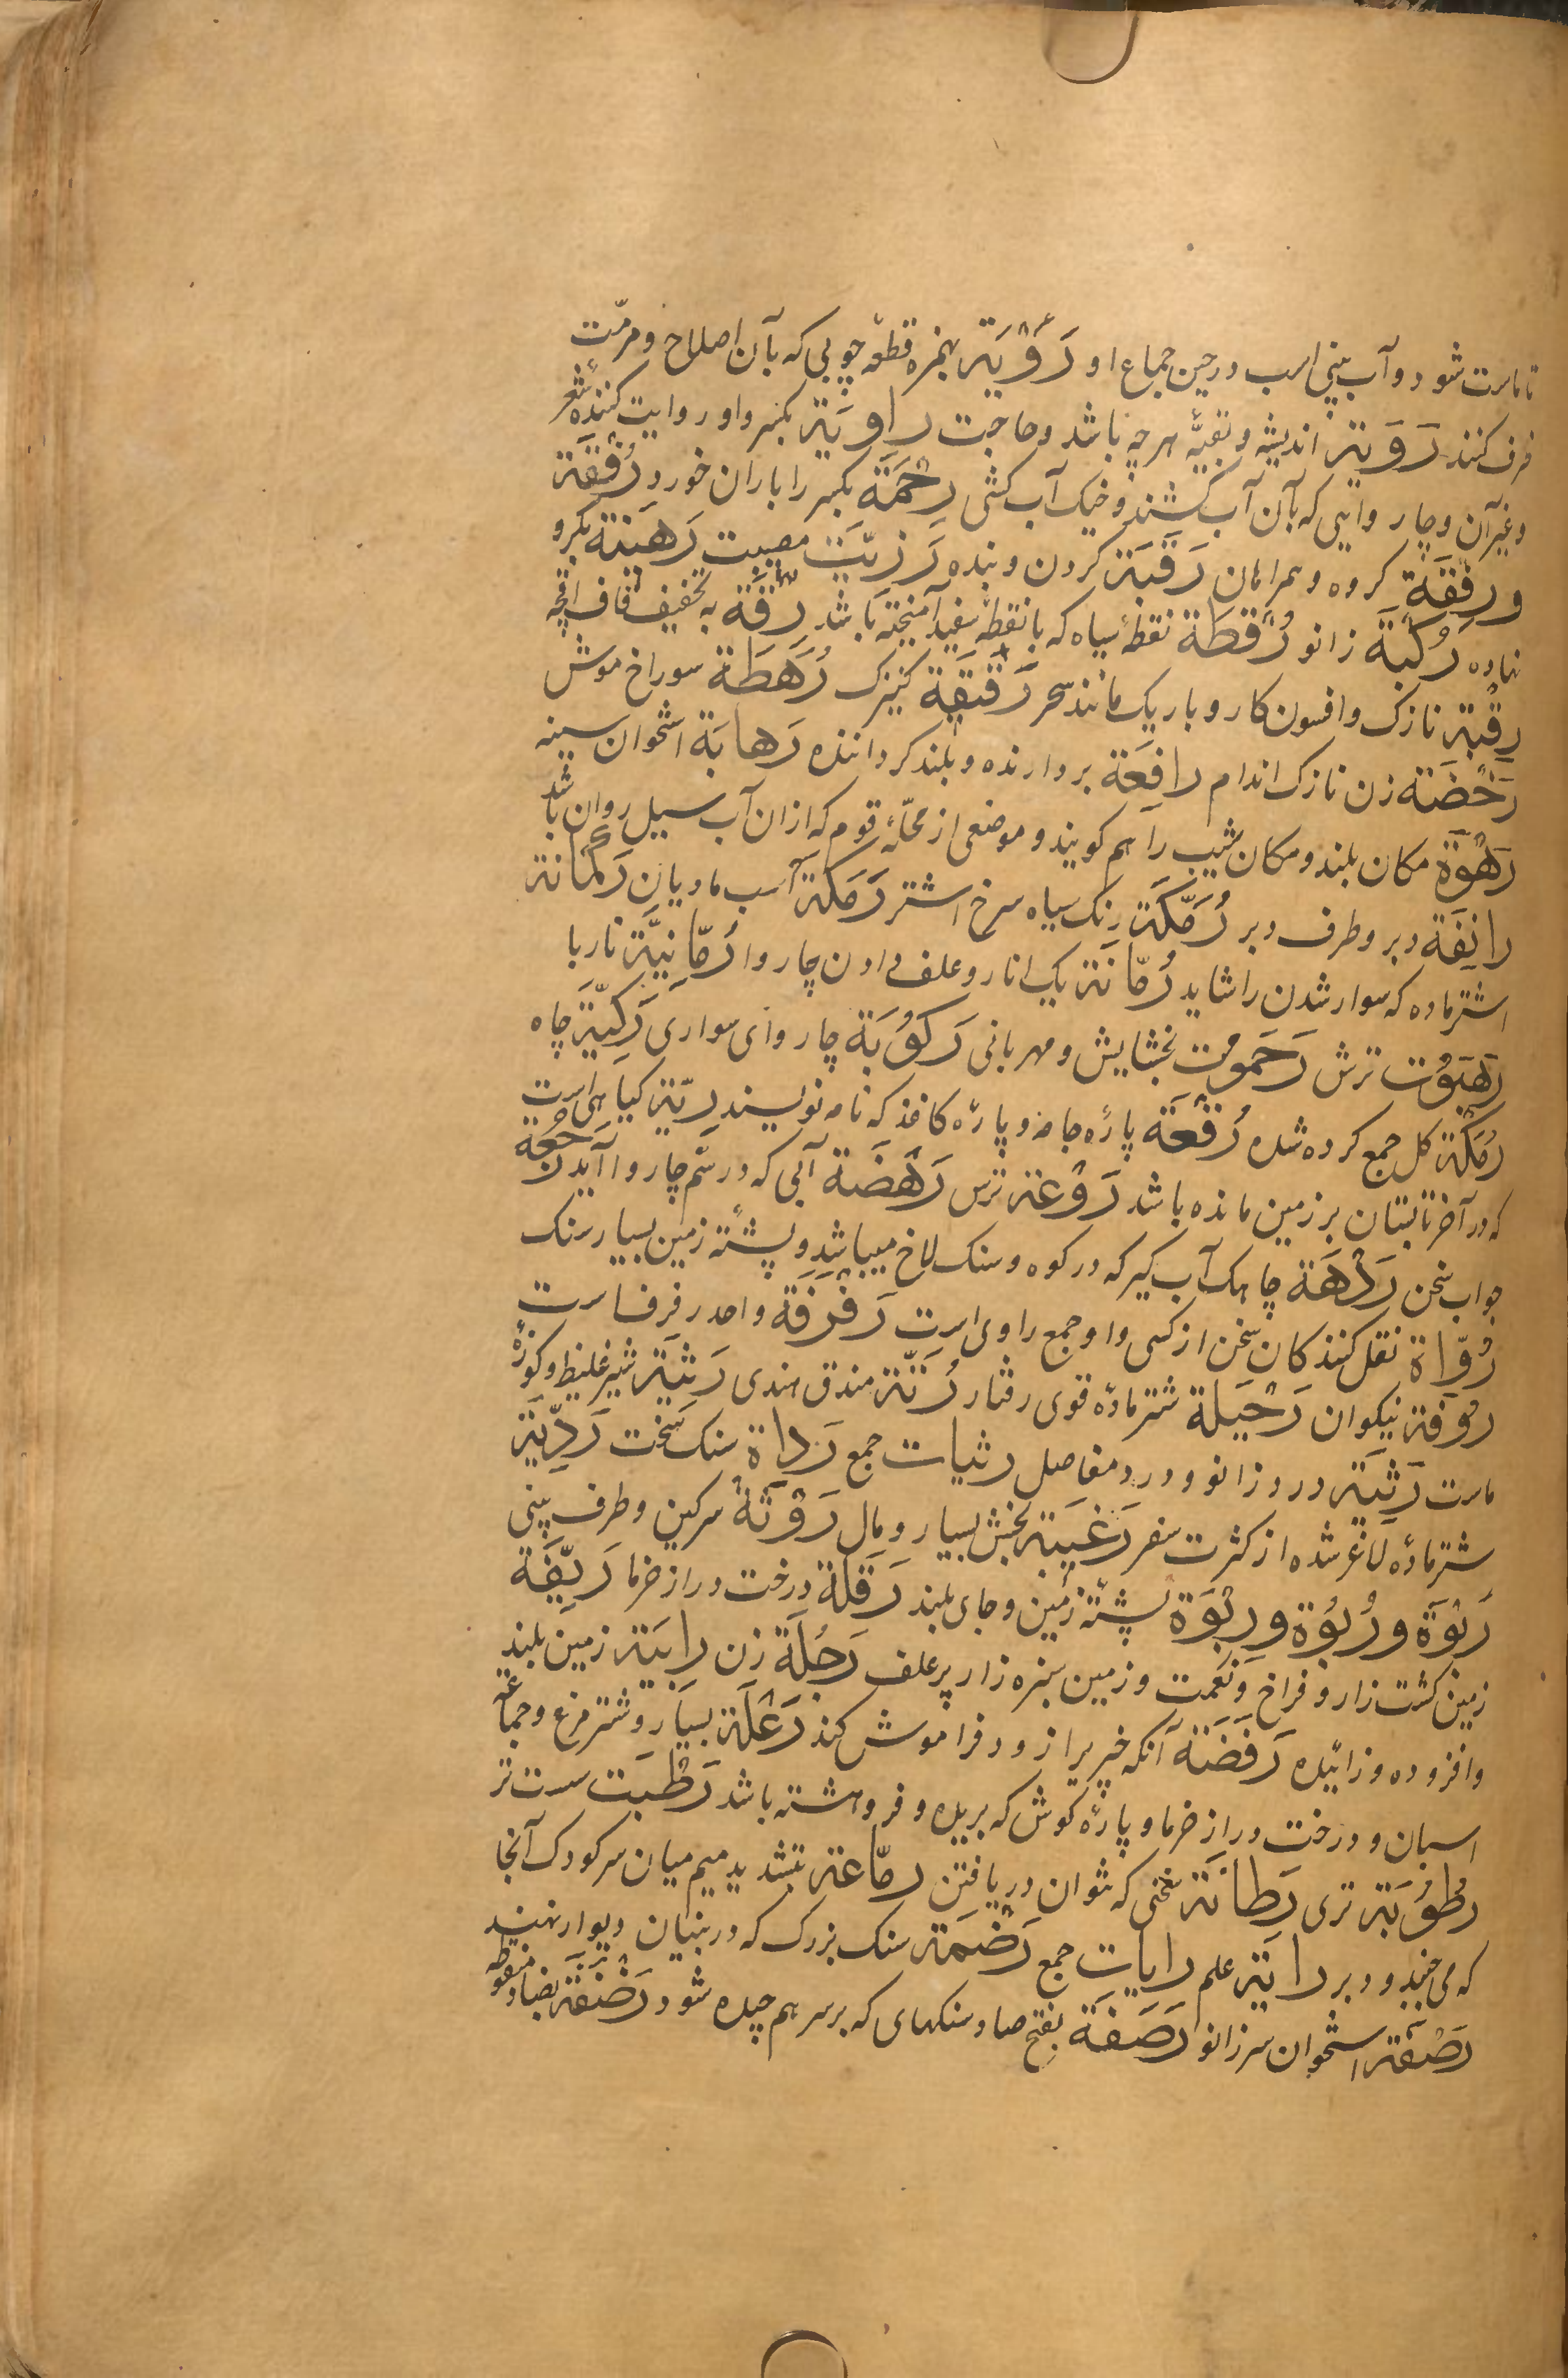 تا ماست شود و آب بینی اسب در حین جماع او رَؤْبَة بهمزه قطعه چوبی که بآن اصلاح و مرمّت
ظرف کنند رَوِیَة اندیشه و بقیهٔ هر چه باشد و حاجت راوِیَة بکسر واو روایت کنندهٔ شعر
و غیر آن و چار وایی که بآن آب کشند و خیک آب کشی رِحْمَة بکسر را باران خورد رُفْقَة
و رِفْقَة کروه و همراهان رَقَبَة کردن و بنده رَزِیَّت مصیبت رَهِینَة بکرو
نهاده رُکْبَة زانو رُقْطَة نقطهٔ سیاه که با نقطهٔ سفید آمیخته باشد رِقَة به تخفیف قاف اقچه
رقیة نازک و افسون کار و باریک مانند سحر رَقِیقَة کنیزک رُهَطَة سوراخ موش
رَخْصَة زن نازک اندام رافِعَة بردارنده و بلند کرداننده رَهابَة استخوان سینه
رَهْوَة مکان بلند و مکان شیب را هم کویند و موضعی از محلّهٔ قوم که ازان آب سیل روان باشد
رانِفَة دبر و طرف دبر رُمَّکَة رنک سیاه سرخ اشتر رَمَکَة اسب مادیان رَکْبانَة
اشتر ماده که سوار شدن را شاید رُمّانَة یک انار و علف دادن چاروا رُمّانِیَّة ناربا
رَهَبُوت ترس رَحَمُوت بخشایش و مهربانی رَکُوبَة چاروای سواری رَکِیَّة چاه
رُمْکَة کل جمع کرده شده رُقْعَة پارهٔ جامه و پارهٔ کاغذ که نامه نویسند رِبَّة کیاهی است
که در آخر تابستان بر زمین مانده باشد رَوْعَة ترس رَهْصَة آبی که در سم چاروا آید رُجْعَة
جواب سخن رَدْهَة چاهک آب کیر که در کوه و سنک لاخ میباشد و پشتهٔ زمین بسیار سنک
رُوّاة نقل کنندکان سخن از کسی و او جمع راوی است رَفْرَفَة واحد رفرفاست
رُوقَة نیکوان رَحْیَلَة شتر مادهٔ قوی رفتار رُتَّة مندق هندی رَثِیَة شیر غلیظ و کوزهٔ
ماست رَثْیَة درد زانو و درد مفاصل رثیات جمع رَداة سنک سخت رَدِیَّة
شتر مادهٔ لاغر شده از کثرت سفر رَغِیبَة بخشش بسیار و مال رَوْثَة سرکین و طرف بینی
رَبْوَة و رُبْوَة و رِبْوَة پشتهٔ زمین و جای بلند رَقْلَة درخت دراز خرما رَیِّفَة
زمین کشت زار و فراخ و نعمت و زمین سبزه زار پر علف رَجُلَة زن رابِیَة زمین بلند
و افزوده و زائیده رَفَضَة آنکه خبر برا زود فراموش کند رَعْلَة بسیار و شتر مرغ و جماعة
اسبان و درخت دراز خرما و پارهٔ کوش که بریده و فرو هشته باشد رَطْبَت سست تر
رُطُوبَة تری رَطانَة سخنی که نتوان دریافتن رمّاعة بتشدید میم میان سر کودک آنجا
که می جنبد و دبر رایَة علم رایات جمع رَضْمَة سنک بزرک که در بنیان دیوار نهند
رَضْفَة استخوان سر زانو رَصَفَة بفتح صاد سنکهای که بر سر هم چیده شود رَضْفَة بضاد منقوطه